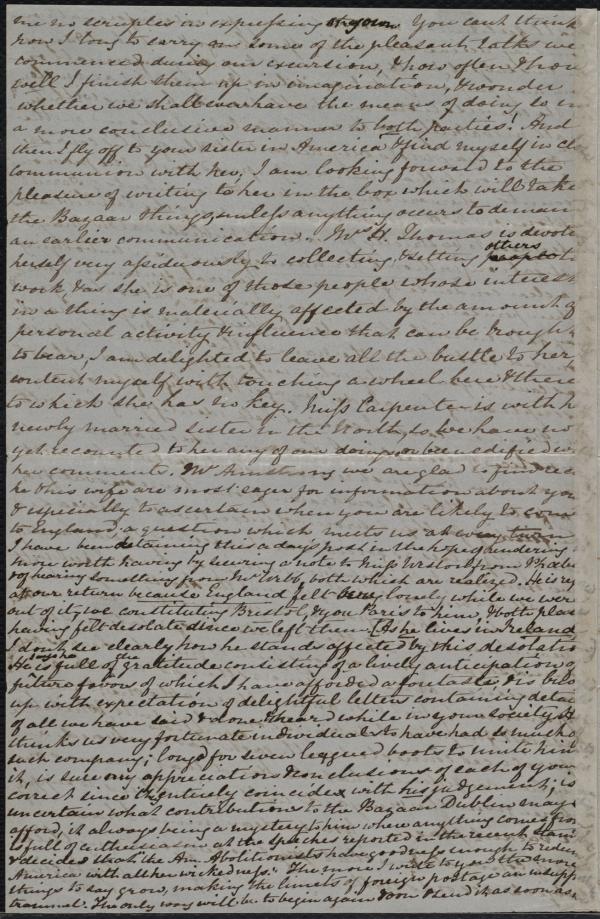 me no scruples in expressing your You cant think
how I long to carry on some of the pleasant talks we
commenced during our excursion, & how often & how
well I finish them up in imagination, & wonder
whether we shall ever have the means of doing so in
a more conclusive manner to both parties! And
then I fly off to your sister in America & find myself in clo
communion with her, I am looking forward to the
pleasure of writing to her in the box which will take
the Bazaar things, unless anything occurs to deman
an earlier communication. Mrs H. Thomas is devote
herself very assiduously to collecting, & setting others to
work, & as she is one of those people whose interest
in a thing is materially affected by the amount of
personal activity & influence that can be brough
to bear, I am delighted to leave all the bustle to her,
content myself with touching a wheel here & there
to which she has no key. Miss Carpenter is with h
newly married sister in the North, so we have no
yet recounted to her any of our doings or been edified wi
her comments. Mr Armstrong we are glad to find
he & his wife are most eager for information about you
& especially to ascertain when you are likely to com
to England a question which meets us at every turn
I have been detaining this a days post in the hope of rendering
more worth having by securing a note to Miss Weston from Phabe
& of hearing something from Mr Webb, both which are realized. He is
at our return because England felt very lonely while we were
out of it, we constituting Bristol, & you Paris to him & both places
having felt desolate since we left them. [As he lives in Ireland
I don't see clearly how he stands affected by this desolatio
He is full of gratitude consisting of a lively anticipation o
future favors of which I have afforded a foretaste & is
up with expectation of delightful letters containing deta
of all we have said & done & heard while in your society. He
thinks us very fortunate individuals to have had so much of
such company; long'd for seven leagued boots to unite him
it, is sure my appreciation & conclusions of each of you
correct since they entirely coincides with his judgement; is
uncertain what contributions to the Bazaar Dublin may
afford, it always being a mystery to him where anything comes from
is full of enthusiasm at the speeches reported in the recent Stan
& decides that "the Am. Abolitionists have goodness enough to redeem
America with all her wickedness." The more I write to you the more
things to say grow, making the limits of foreign postage an
trammel. The only way will be to begin again soon & send it as soon as